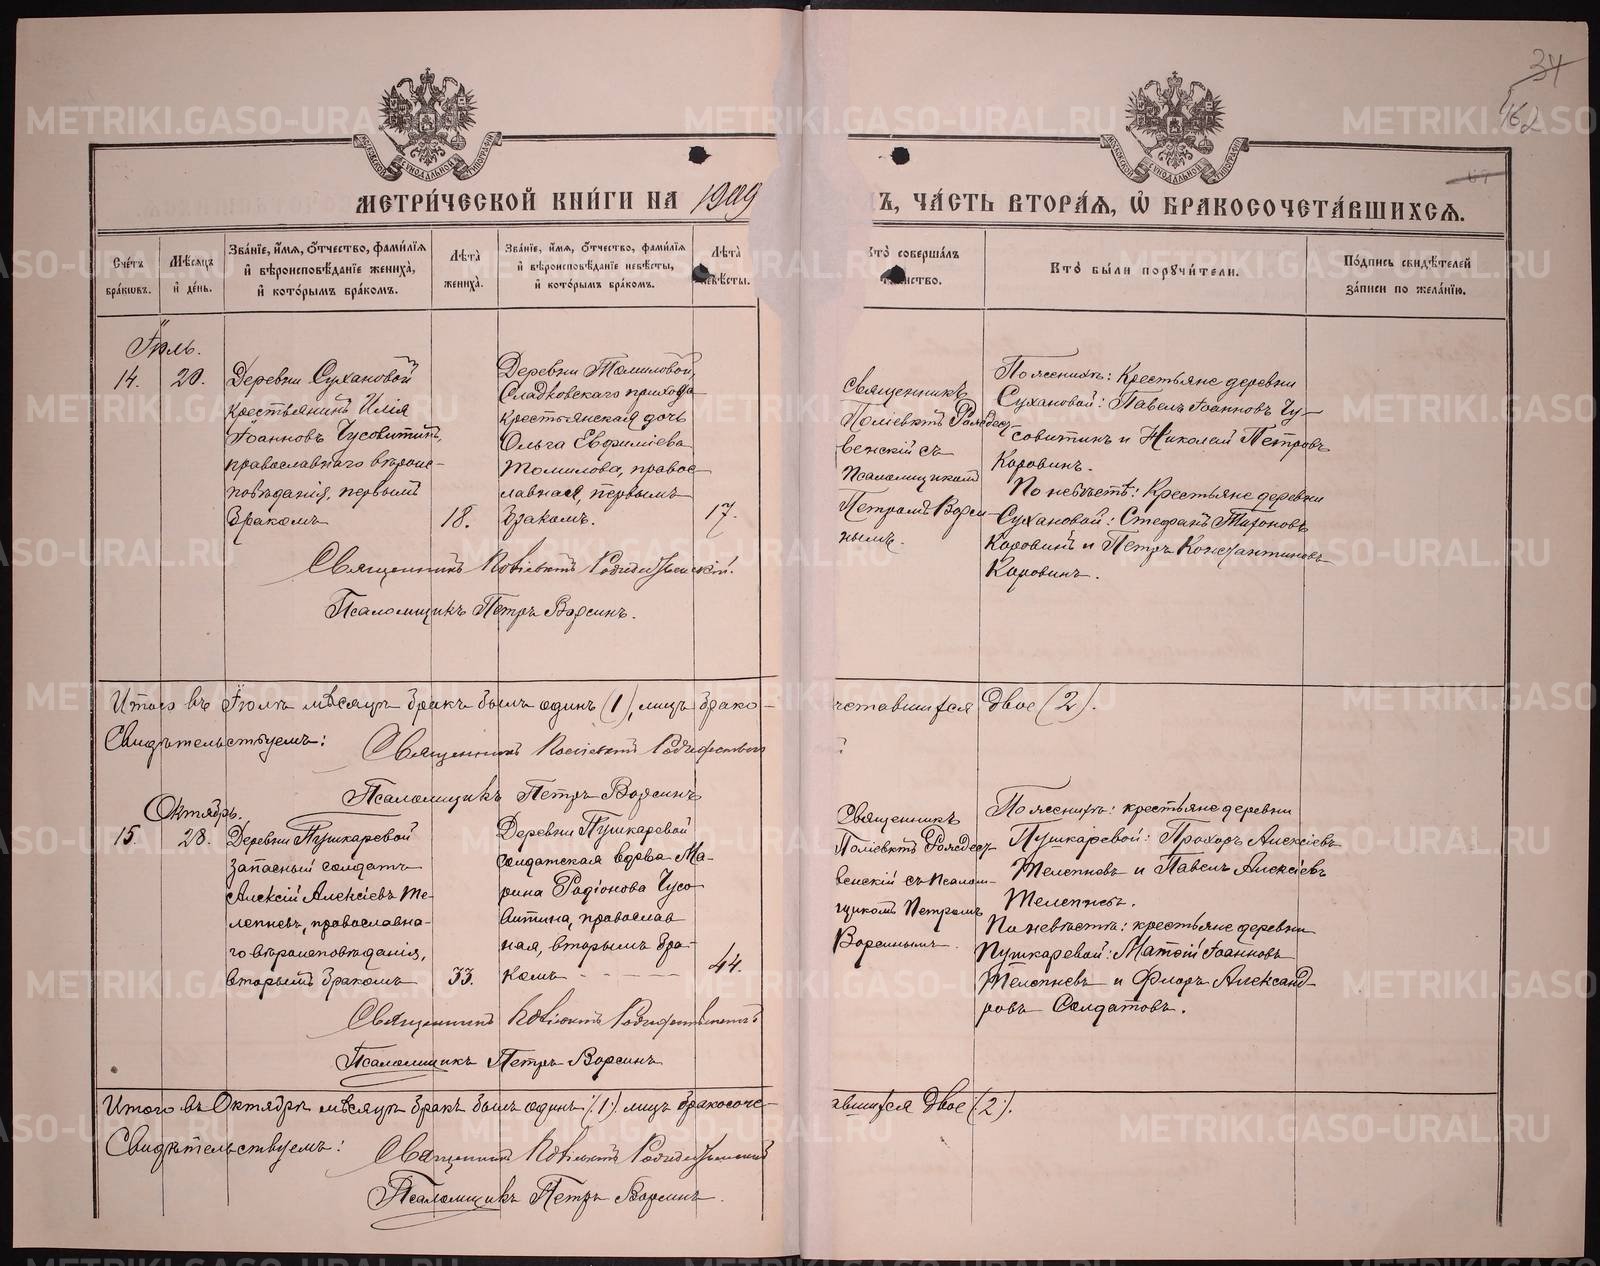 34
162
МЕТРИ́ЧЕСКОЙ КНИ́ГИ НА 1909
Ъ, ЧА́СТЬ ВТОРА́Я, Ѽ БРАКОСОЧЕТА́ВШИХСЯ.
Счётъ бра́кωвъ.
Мѣ́сяцъ и҆ де́нь.
Зва́нїе, и҆́мя, ѻ҆́тчество, фами́лїя и҆ вѣроисповѣ́данїе жениха̀, и҆ кото́рымъ бра́комъ.
Лѣ́та жениха̀.
Зва́нїе, и҆́мя, ѻ҆́тчество, фами́лїя и҆ вѣроисповѣ́данїе невѣ́сты, и҆ кото́рымъ бра́комъ.
Лѣ́та невѣ́сты.
Кто̀ соверша́лъ таинство.
Кто̀ бы́ли порꙋчи́тели.
По́дпись свидѣ́телей за́писи по жела́нїю.
Іюль.
14.
20.
Деревни Сухановой
крестьянинъ Илія
Іоанновъ Чусовитинъ,
православнаго вѣроис-
повѣданія, первымъ
бракомъ
18.
Деревни Томиловой,
Сладковскаго прихода
крестьянская дочь
Ольга Евфиміева
Томилова, правос-
лавная, первымъ
бракомъ.
17.
Священникъ
Поліевктъ Рождест-
венскій съ
псаломщикомъ
Петромъ Ворси-
нымъ.
По женихѣ: Крестьяне деревни
Сухановой: Павелъ Іоанновъ Чу-
совитинъ и Николай Петровъ
Коровинъ.
По невѣстѣ: Крестьяне деревни
Сухановой: Стефанъ Тихоновъ
Коровинъ и Петръ Константиновъ
Коровинъ.
Священникъ Поліевктъ Рождественскій.
Псаломщикъ Петръ Ворсинъ.
Итого въ Іюлѣ мѣсяцѣ бракъ былъ одинъ (1), лицъ брако-
четавшихся двое (2).
Свидѣтельствуемъ:
Священникъ Поліевктъ Рождествен
Псаломщикъ Петръ Ворсинъ
Октябрь.
15.
28.
Деревни Пушкаревой
запасный солдатъ
Алексій Алексіевъ Те-
лепневъ, православна-
го вѣроисповѣданія,
вторымъ бракомъ
33.
Деревни Пушкаревой
солдатская вдова Ма-
рина Родіонова Чусо-
витина, православ
ная, вторымъ бра-
комъ
44.
Священникъ
Поліевктъ Рождест-
венскій съ псалом-
щикомъ Петромъ
Ворсинымъ.
По женихѣ: крестьяне деревни
Пушкаревой: Прохоръ Алексіевъ
Телепневъ и Павелъ Алексіевъ
Телепневъ.
По невѣстѣ: крестьяне деревни
Пушкаревой: Матѳій Іоанновъ
Телепневъ и Флоръ Александ-
ровъ Солдатовъ.
Священникъ Поліевктъ Рождественскій
Псаломщикъ Петръ Ворсинъ
Итого въ Октябрѣ мѣсяцѣ бракъ былъ одинъ (1) лицъ бракосоче-
авшихся двое (2).
Свидѣтельствуемъ:
Священникъ Поліевктъ Рождественскій
Псаломщикъ Петръ Ворсинъ.
METRIKI.GASO-URAL.RU